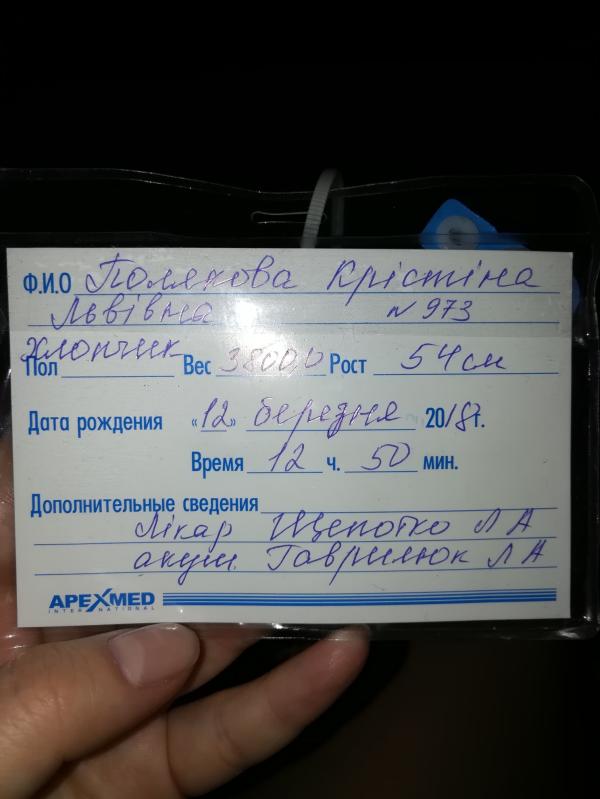 Ф.И.О Полякова Крістіна
Львівна №973
Хлопчик
Пол Вес 3800,0 Рост 54см
Дата рождения «12» березня 2018г.
Время 12 ч. 50 мин.
Дополнительные сведения
Лікар Щепотко Л А
акуш. Гаврилюк Л А
APEXMED
INTERNATIONAL